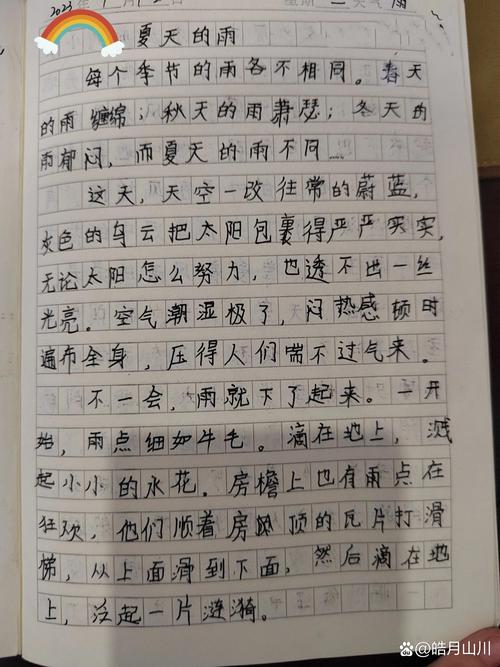 2023年 月 日 星期二 天气 雨
夏天的雨
每个季节的雨各不相同。春天
的雨缠绵；秋天的雨萧瑟；冬天的
雨郁闷，而夏天的雨不同……
这天，天空一改往常的蔚蓝，
灰色的乌云把太阳包裹得严严实实，
无论太阳怎么努力，也透不出一丝
光亮。空气潮湿极了，闷热感顿时
遍布全身，压得人们喘不过气来。
不一会，雨就下了起来。一开
始，雨点细如牛毛。滴在地上，溅
起小小的水花。房檐上也有雨点在
狂欢，他们顺着房 顶的瓦片打滑
梯，从上面滑到下面，然后滴在地
上，泛起一片涟漪。
百家号/皓月山川